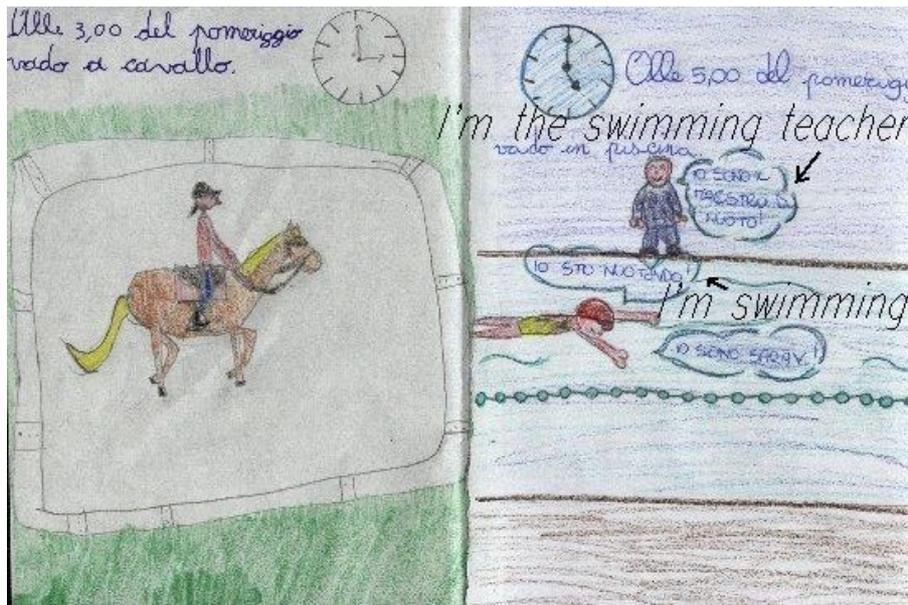 Alle 3,00 del pomeriggio
vado a cavallo.
Alle 5,00 del pomerigg
I'm the swimming teacher
vado in piscina
IO SONO IL
MAESTRO DI
NUOTO!
IO STO NUOTANDO!
I'm swimming
IO SONO SARA V.!